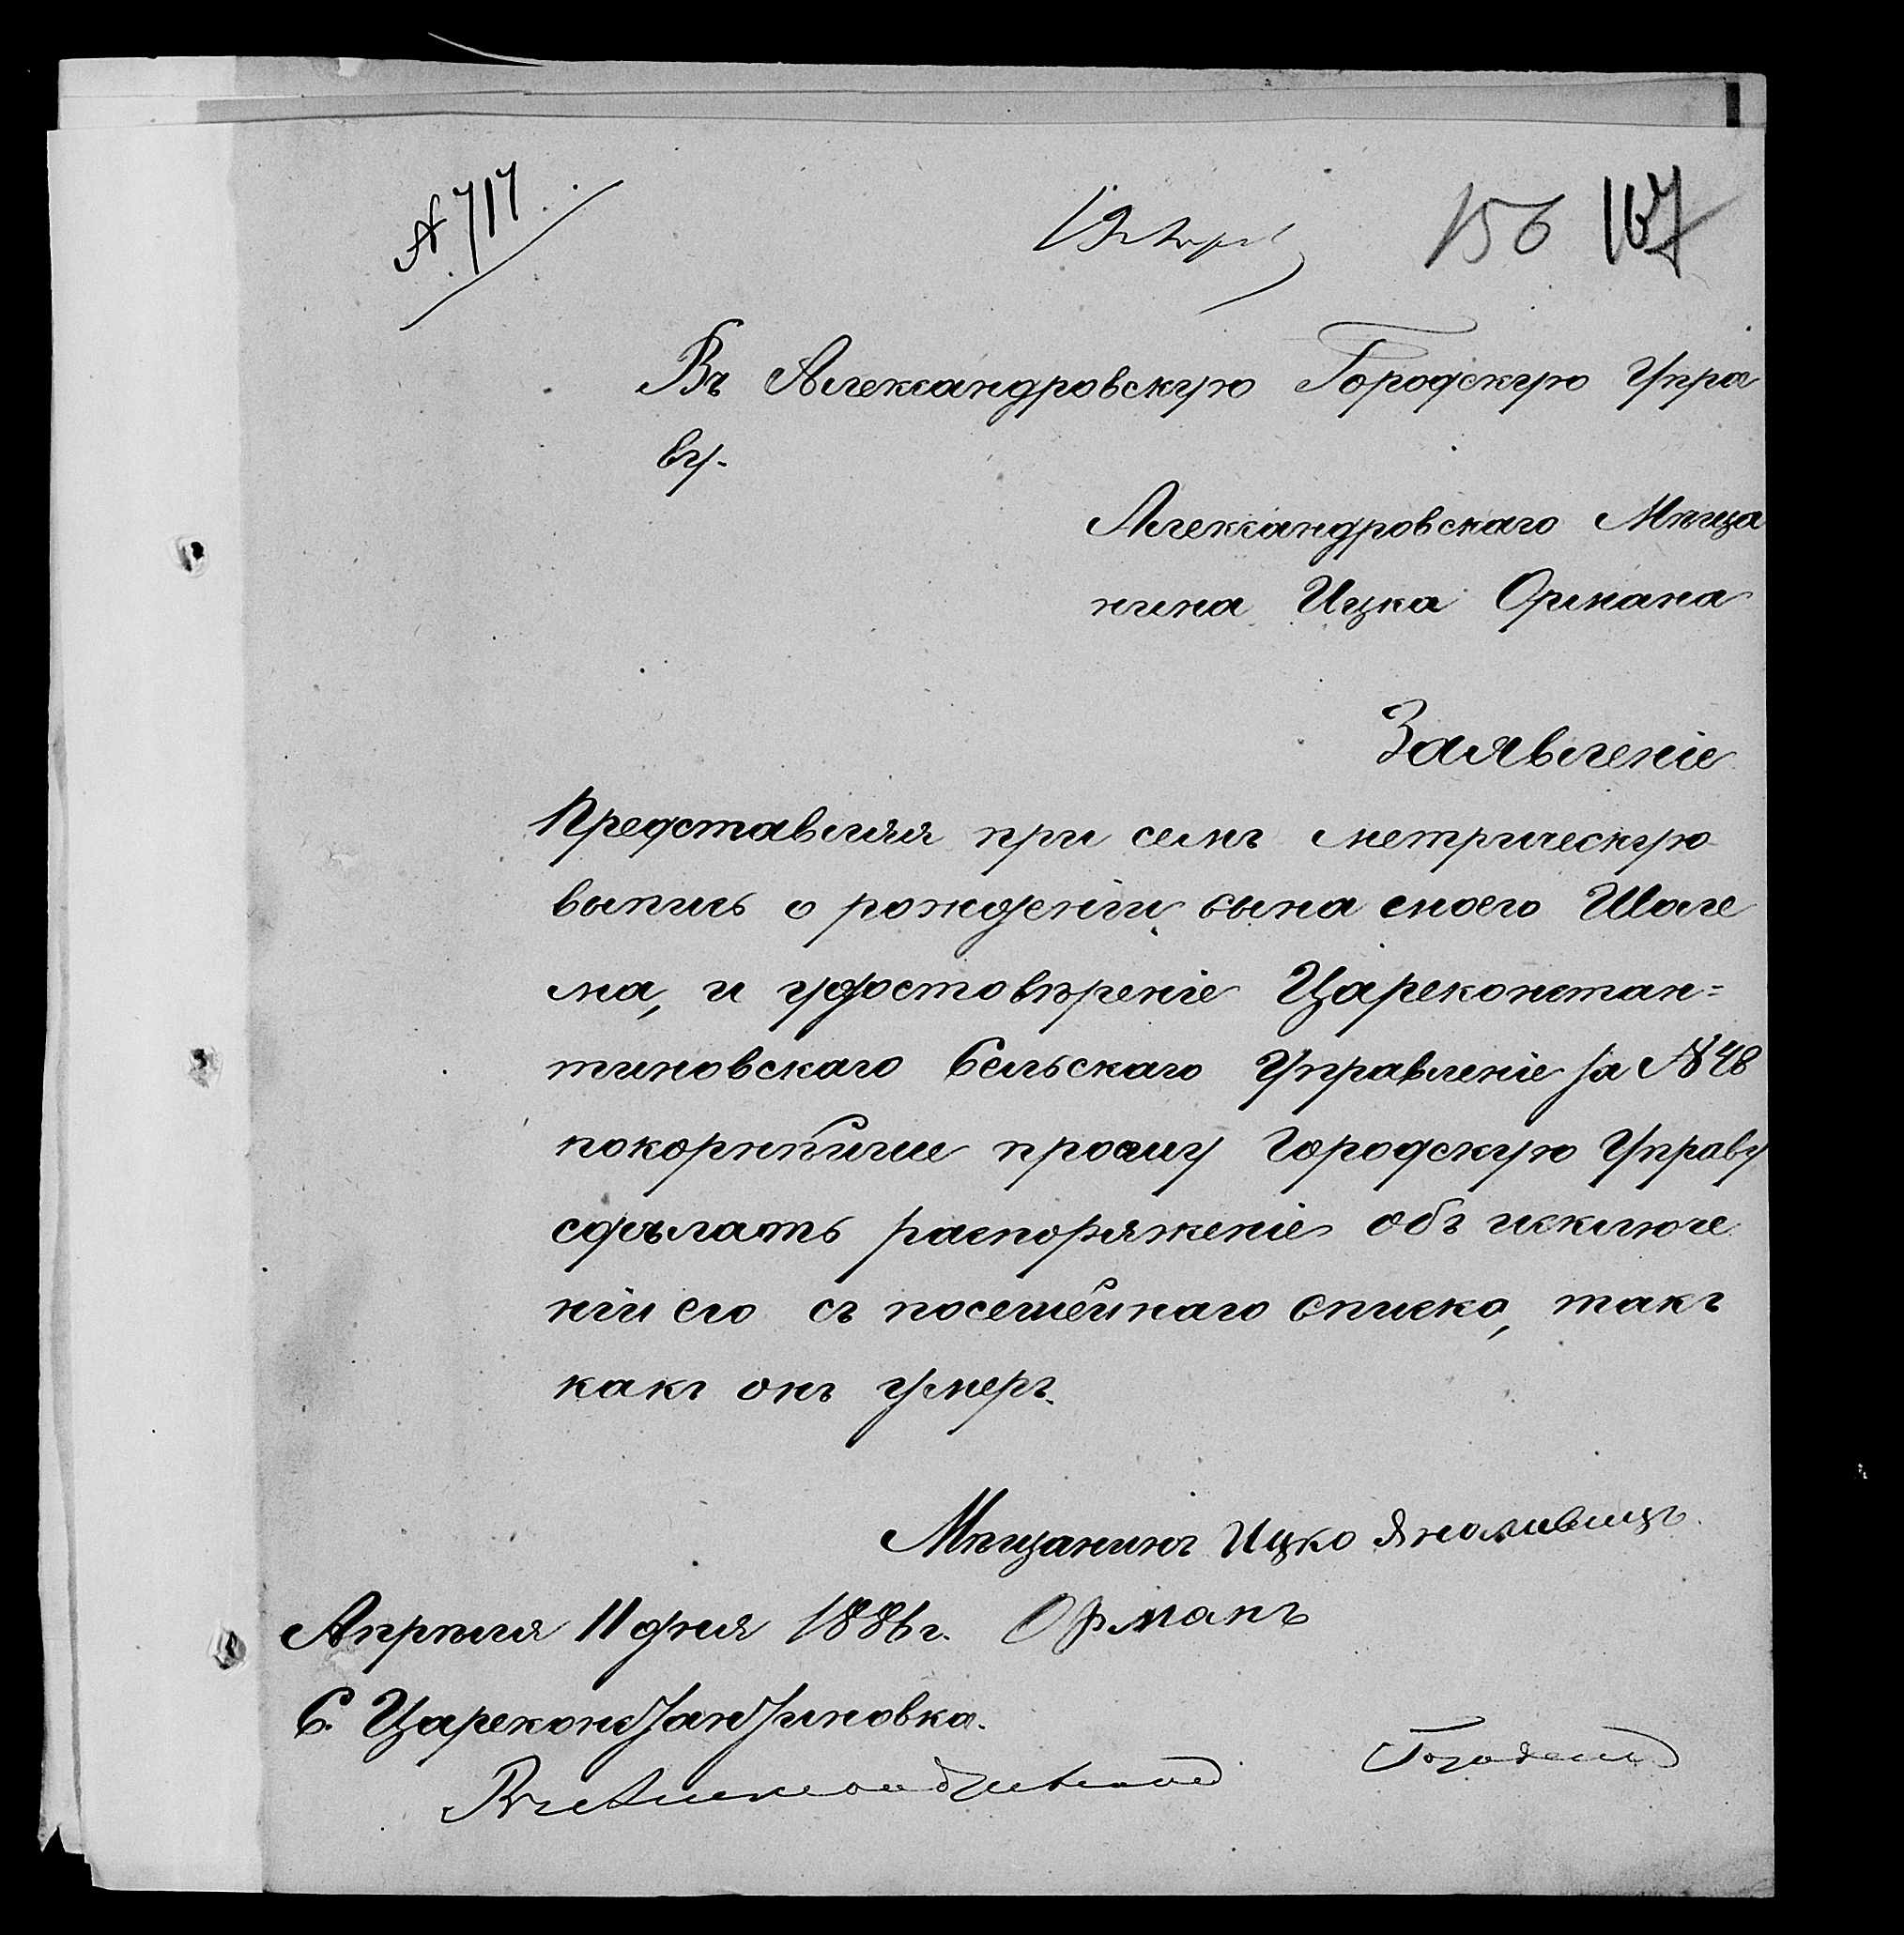 № 717.
156 167
Въ Александровскую Городскую Упра
ву.
Александровскаго Мѣща
нина Ицка Ормана
Заявленіе
Представляя при семъ метрическую
выпись о рожденіи сына своего Шле
ма, и удостовѣреніе Цареконстан=
тиновскаго Сельскаго Управленіе за № 48
покорнѣйше прошу Городскую Управу
сдѣлать распоряженіе объ исключе
ніи его съ посемейнаго списка, такъ
какъ онъ умеръ.
Мѣщанинъ Ицко
Апрѣля 11 дня 1886 г. Орманъ
С. Цареконстантиновка.